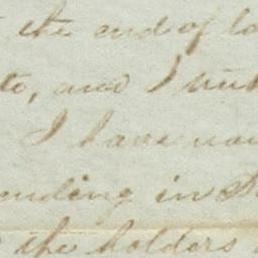 the end of
to, and I
I have
ending in
the holders